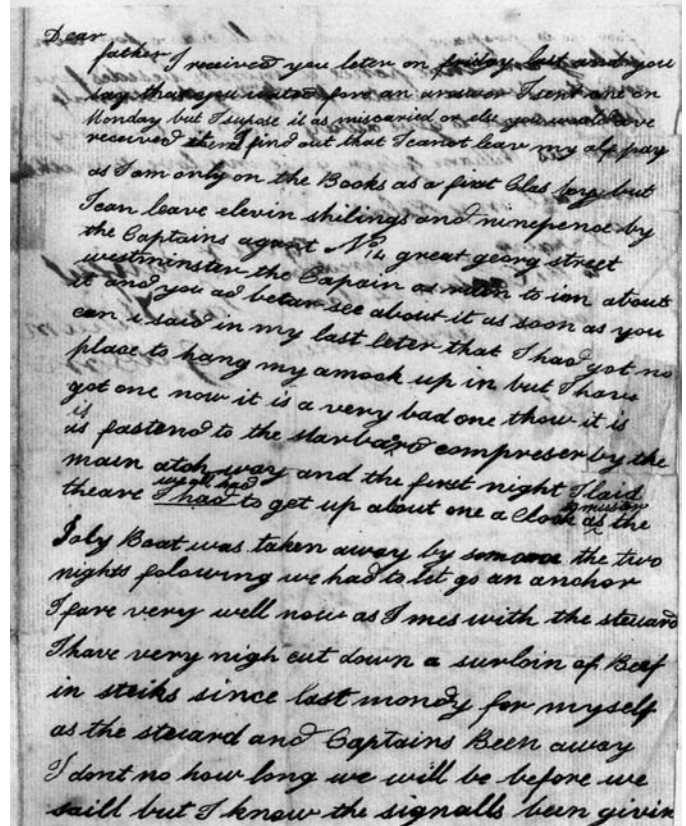 Dear
father I received you leter on friday last and you
say that you waited for an answer I sent one on
Monday but I supose it as miscaried or else you would ave
received it and I find out that I canot leav my alf pay
as I am only on the Books as a first Clas boy but
I can leave elevin shilings and ninepence by
the Captains agent No 14 great georg street
westminster the Captain as to im about
it and you ad betar see about it as soon as you
can i said in my last leter that I had got no
place to hang my amock up in but I have
got one now it is a very bad one thow it is
is
us fastend to the starbard compreser by the
main atch way and the first night I laid
we all had to muster
theare I had to get up about one a Clock as the
Joly Boat was taken away by the two
nights folowing we had to let go an anchor
I fare very well now as I mes with the steward
I have very nigh cut down a surloin of Beef
in steiks since last mondy for myself
as the steward and Captains Been away
I dont no how long we will be before we
saill but I know the signalls been givin